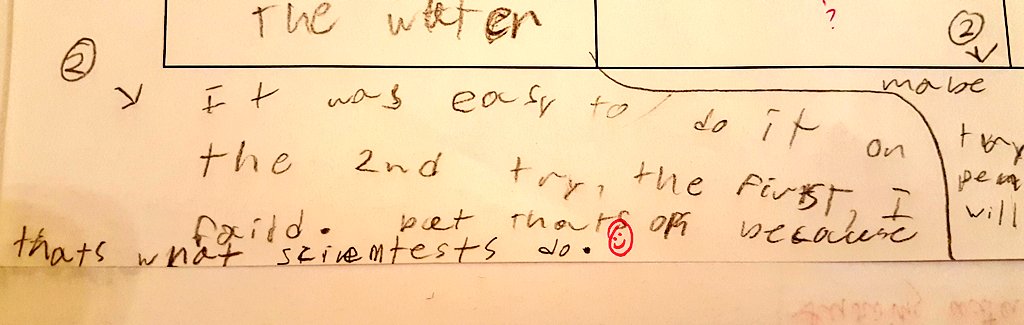 The water
?
2
2
mabe
It was easy to do it on
the 2nd try, the first, I
faild. but thats ok because
thats what scientests do.
try
will